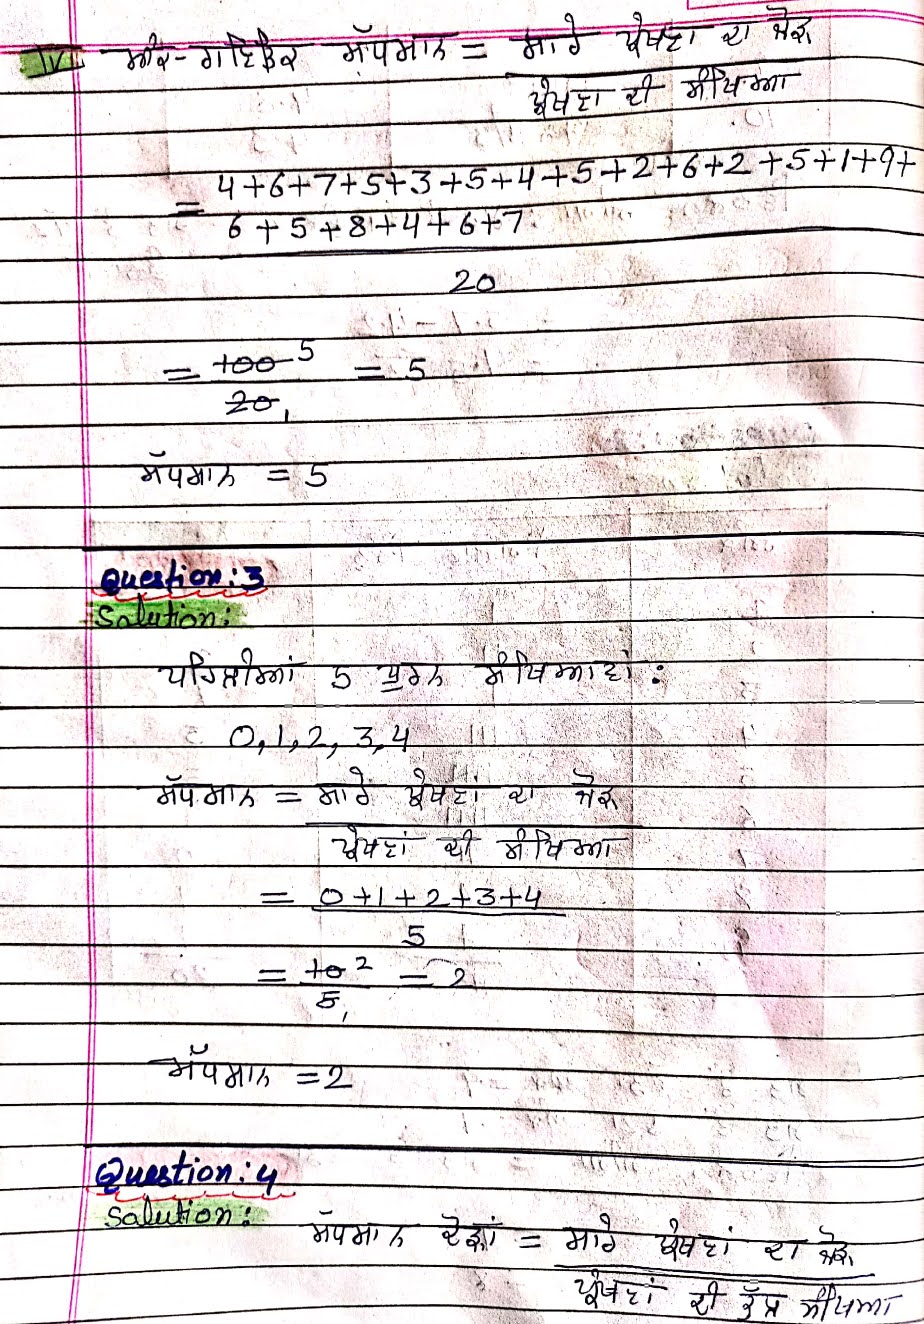 IV ਅੰਕ-ਗਣਿਤਕ ਮੱਧਮਾਨ = ਸਾਰੇ ਪ੍ਰੇਖਣਾਂ ਦਾ ਜੋੜ
ਪ੍ਰੇਖਣਾਂ ਦੀ ਸੰਖਿਆ
4+6+7+5+3+5+4+5+2+6+2+5+1+9+
=
6+5+8+4+6+7
20
= 100 5 = 5
20 1
ਮੱਧਮਾਨ = 5
Question:3
Solution:
ਪਹਿਲੀਆਂ 5 ਪੂਰਨ ਸੰਖਿਆਵਾਂ :
0,1,2,3,4
ਮੱਧਮਾਨ = ਸਾਰੇ ਪ੍ਰੇਖਣਾਂ ਦਾ ਜੋੜ
ਪ੍ਰੇਖਣਾਂ ਦੀ ਸੰਖਿਆ
= 0+1+2+3+4
5
= 10 2 = 2
5 1
ਮੱਧਮਾਨ = 2
Question:4
Solution:
ਮੱਧਮਾਨ ਦੌੜਾਂ = ਸਾਰੇ ਪ੍ਰੇਖਣਾਂ ਦਾ ਜੋੜ
ਪ੍ਰੇਖਣਾਂ ਦੀ ਕੁੱਲ ਸੰਖਿਆ